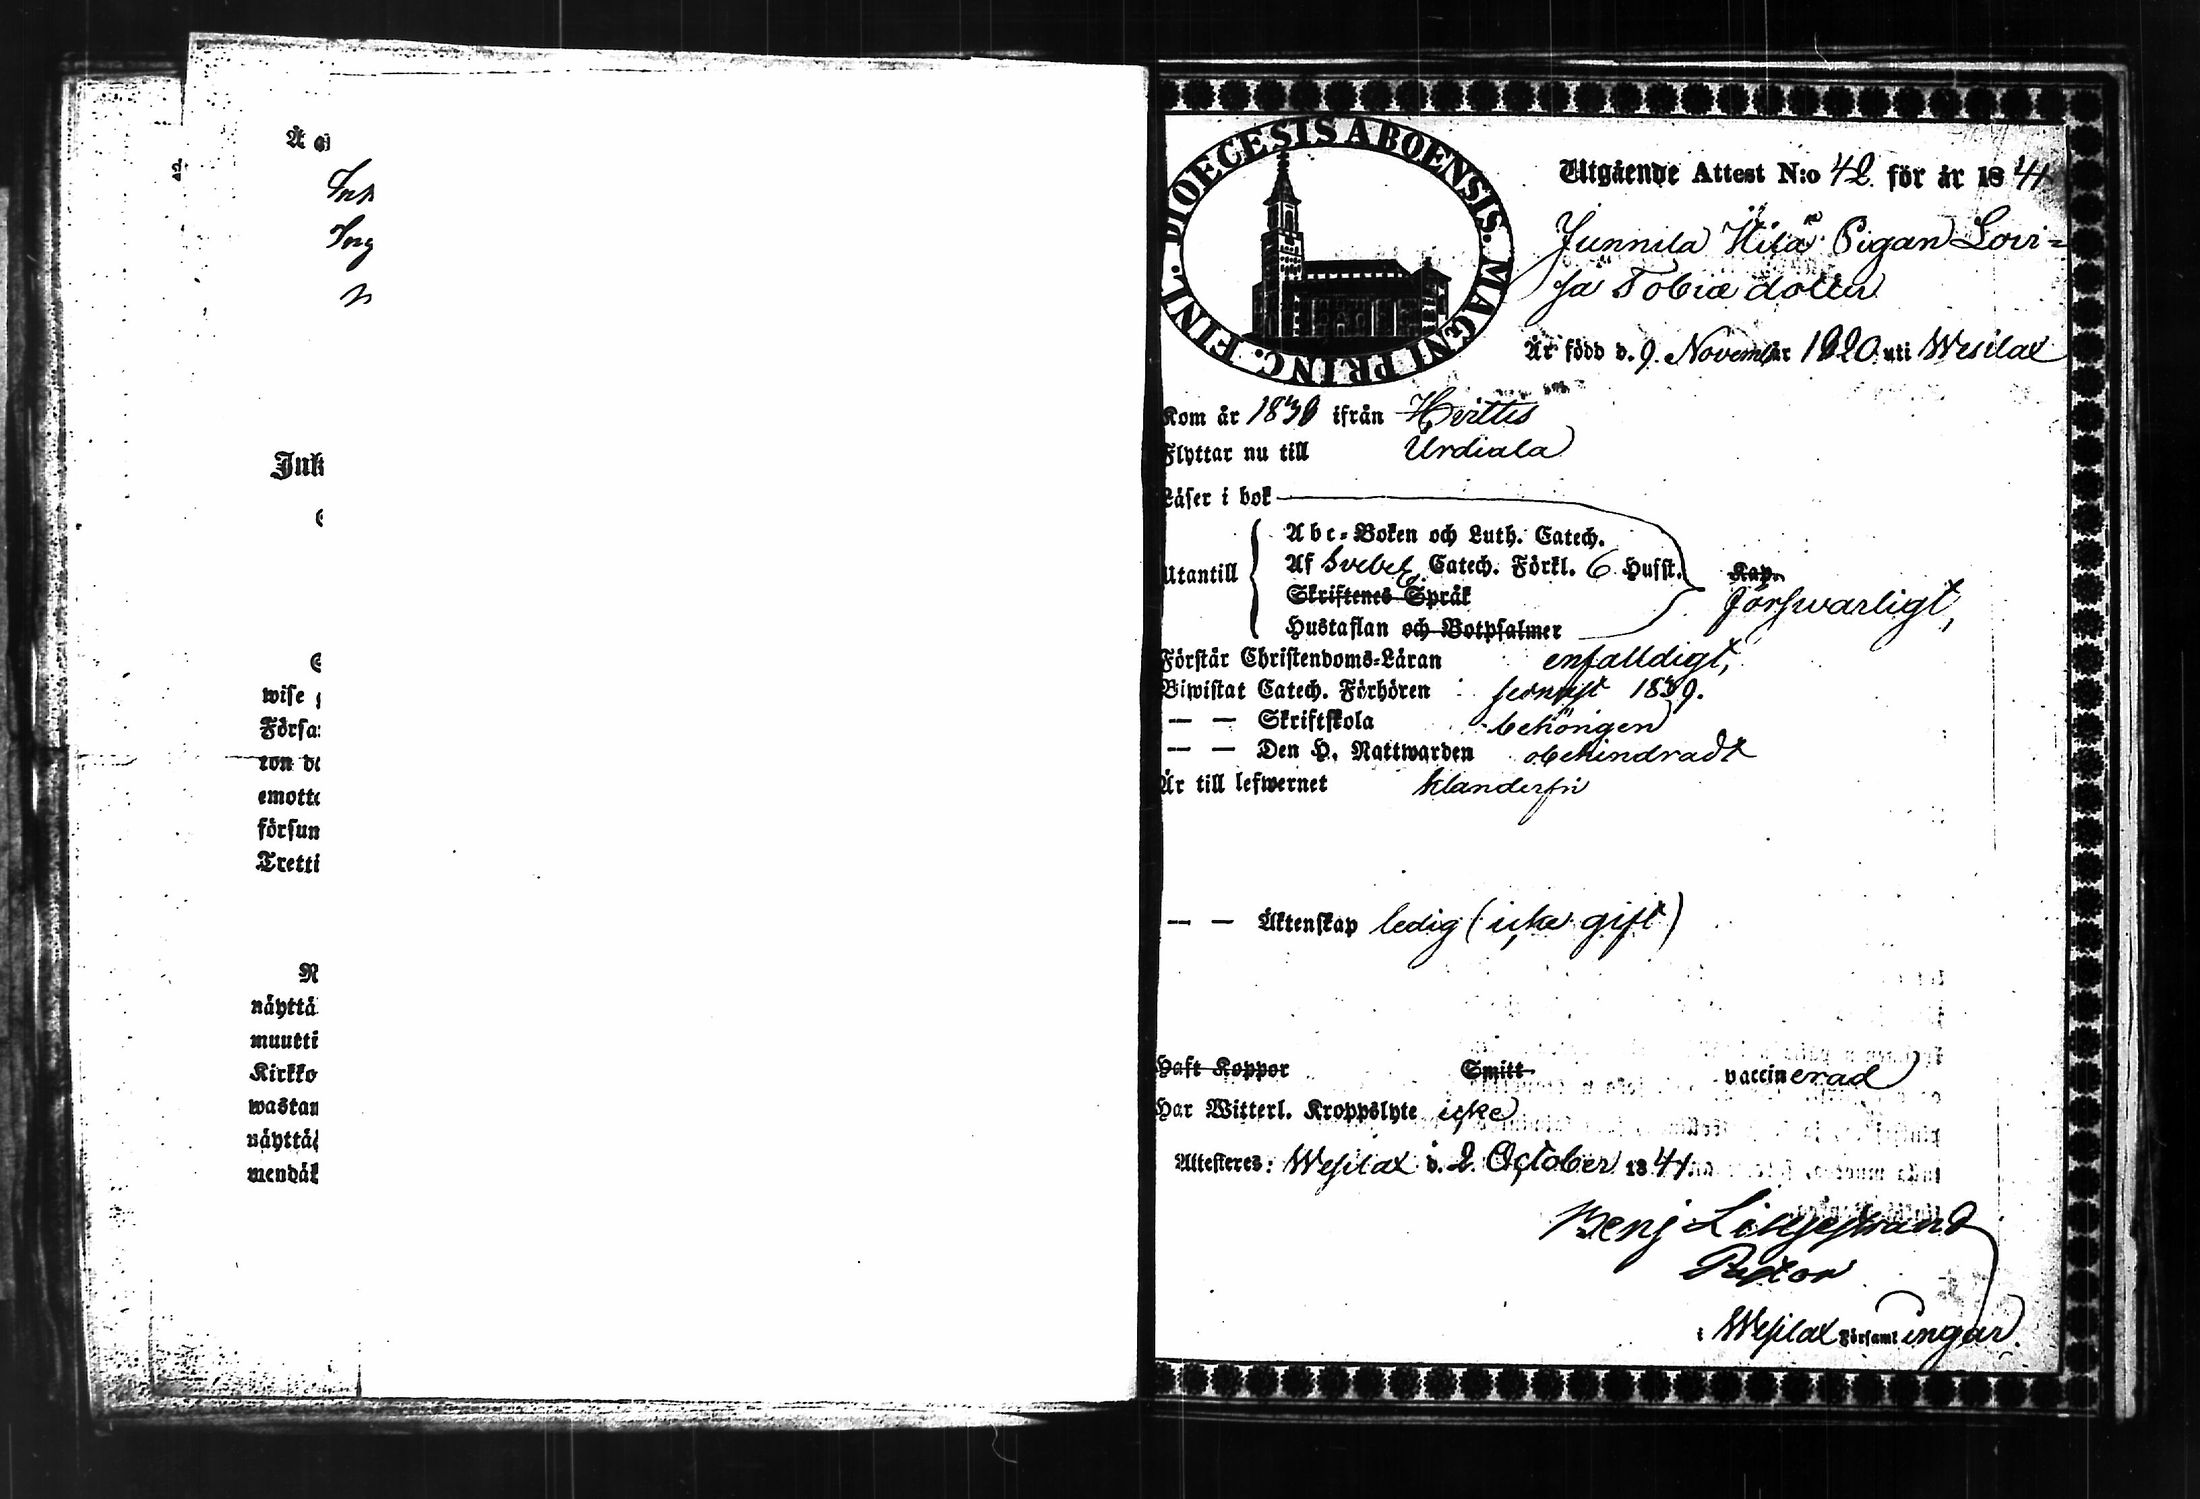 Å
Ink
Sorg
Ink
wise
Försa
ton de
emotta
försun
Tretti
näyttä
muutti
Kirkko
wastan
näyttä
mendäk
DIOECESIS ABOENSIS. MAGNI PRINC. FINL.
Utgående Attest N:o 42. för år 1841
Junnila Hilä Pigan Lovi=
sa Tobiædotter
Är född d. 9. November 1820 uti Wesilax
Kom år 1836 ifrån Hvittis
Flyttar nu till Urdiala
Läser i bok
Utantill
Abc-Boken och Luth. Catech.
Af Svebel. Catech. Förkl. 6 Hufst. Kap.
Skriftenes Språk
försvarligt,
Hustaflan och Botpsalmer
Förstår Christendoms-Läran enfalldigt,
Biwistat Catech. Förhören sednast 1839.
— — Skriftskola behörigen
— — Den H. Nattwarden obehindradt
Är till lefwernet klanderfri
— — Äktenskap ledig (icke gift)
Haft Koppor Smitt vaccinerad
Har Witterl. Kroppslyte icke
Attesteras: Wesilax d. 2. October 1841.
Benj Liljestrand
Pastor
i Wesilax Församlingar.